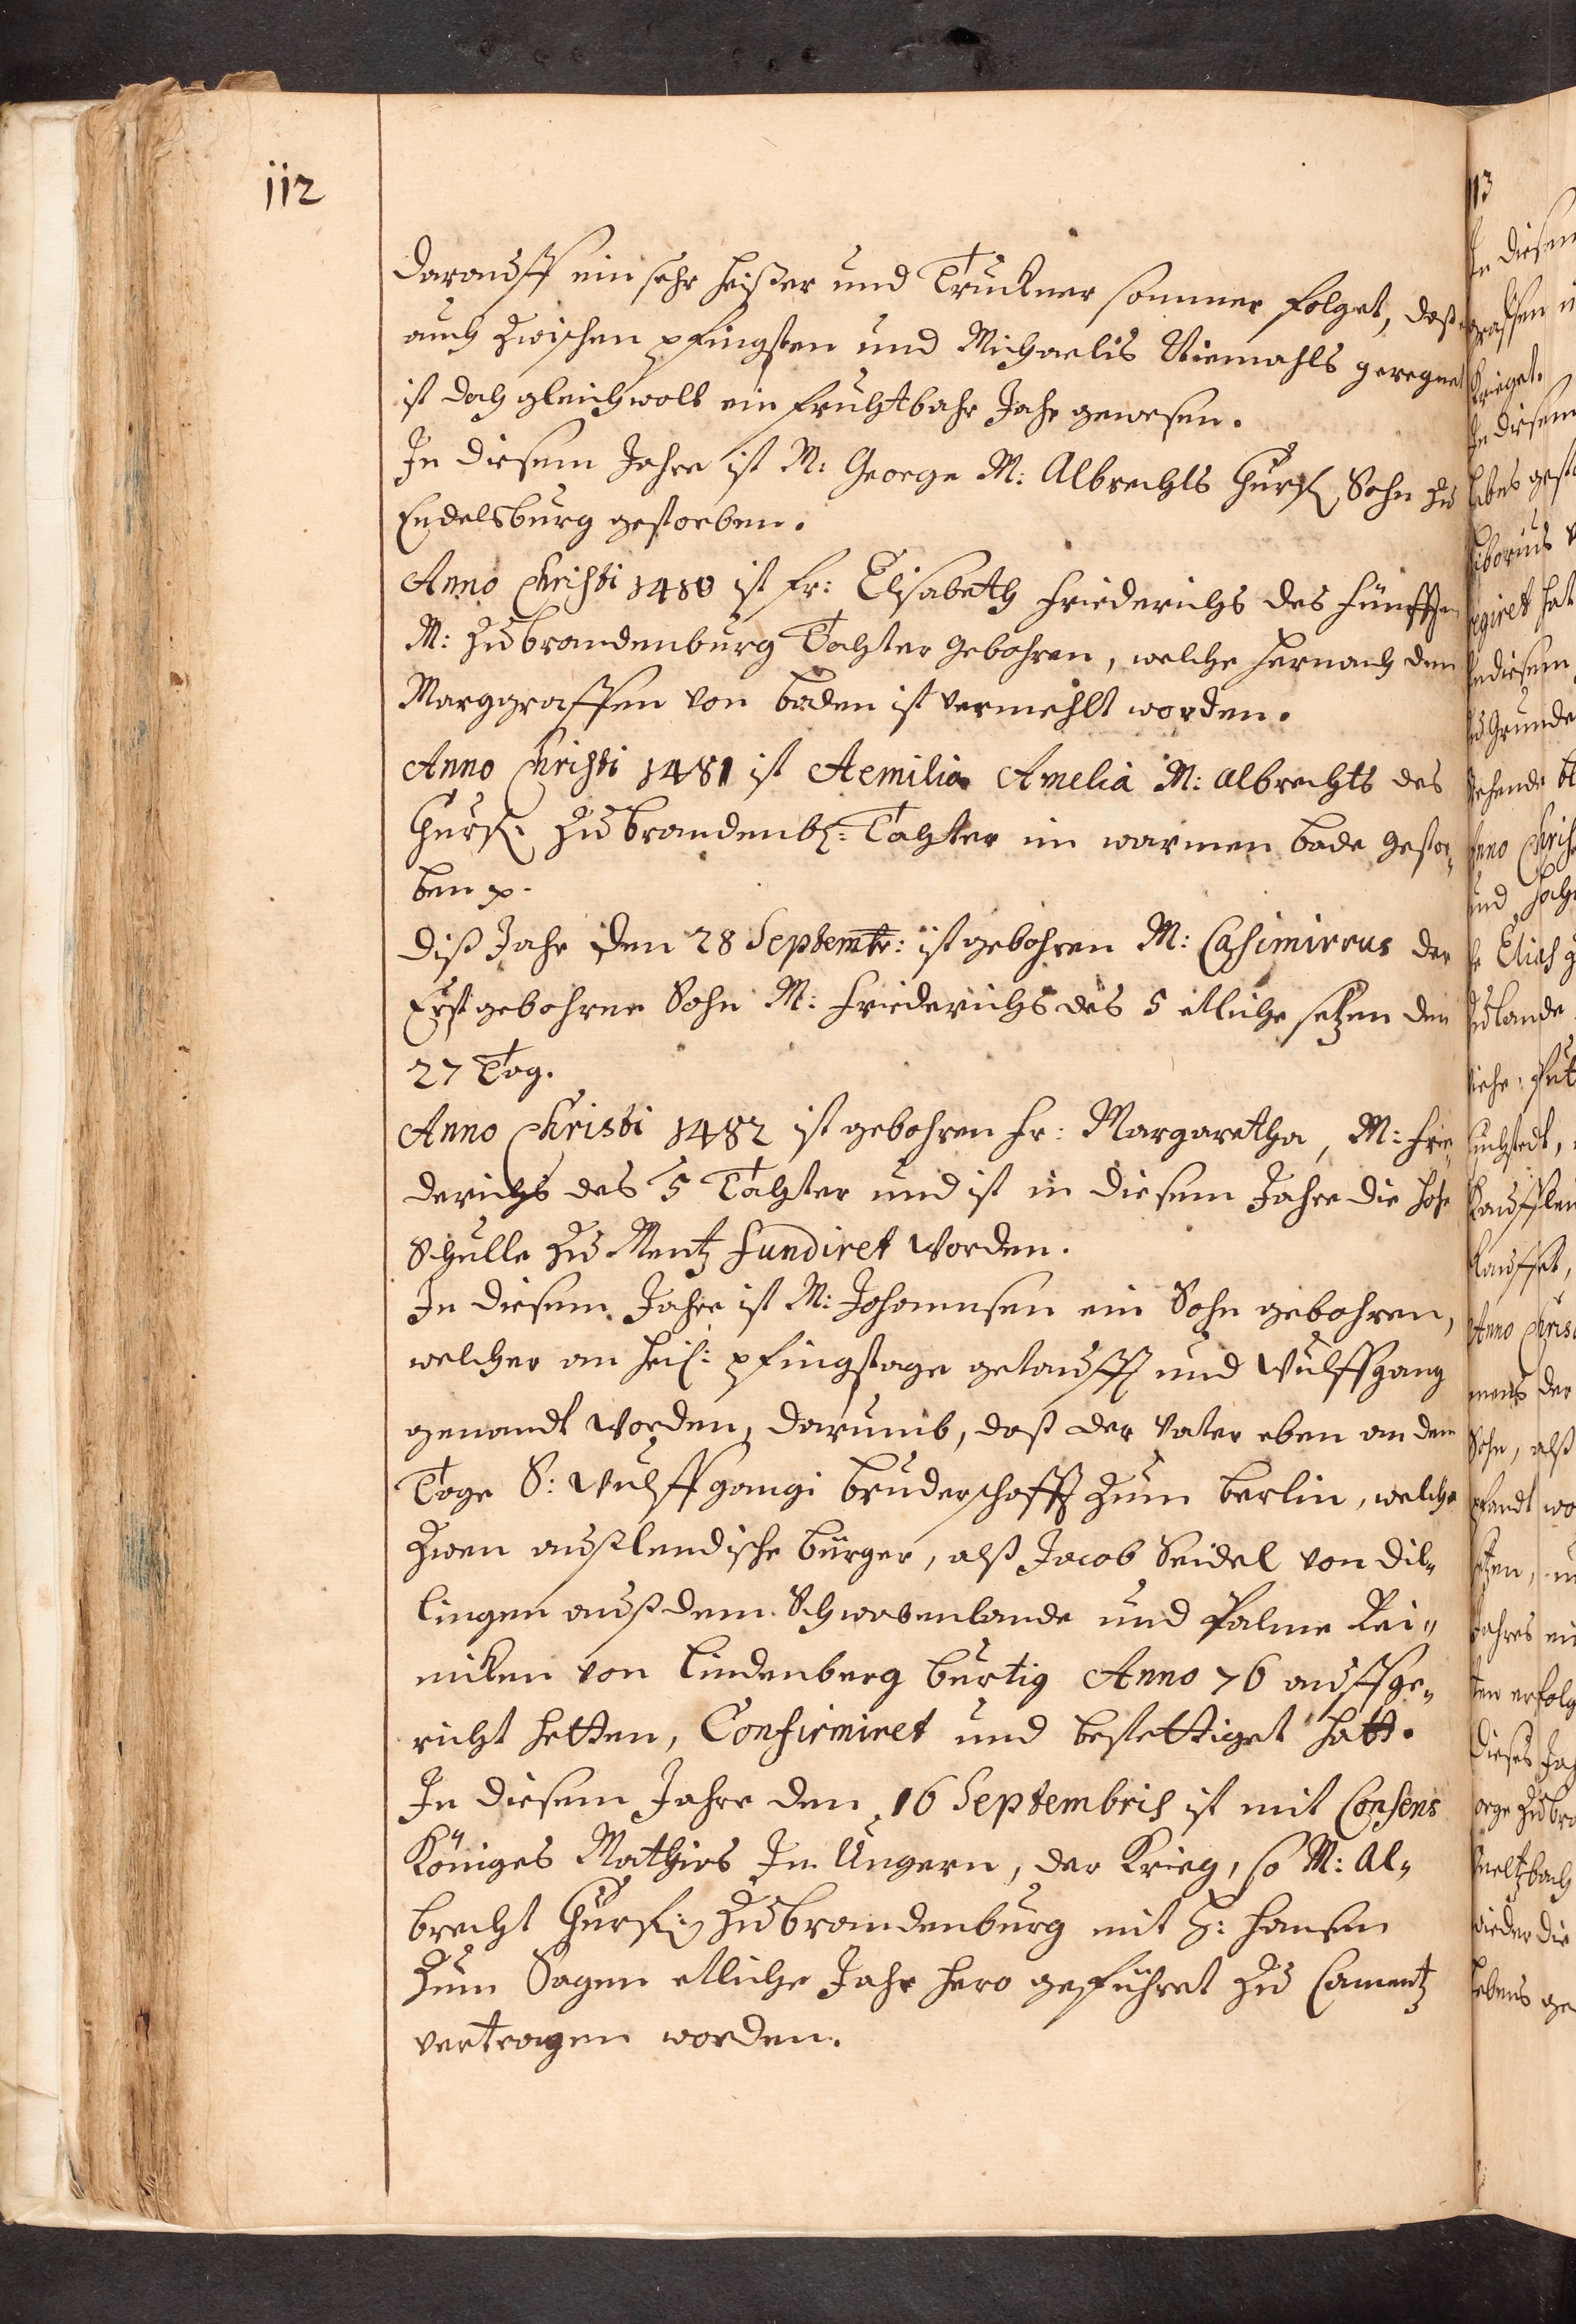 112
daraus̈ff ein sehr heißer und Truckner sommer folget, daß es
auch zwischen pfingsten und Michaelis Niemahls geregnet
ist doch gleichwoll ein fruchtbahr Jahr gewesen.
In diesem Jahre ist M: George M: Albrechts Churf: Sohn zu
Cadelsburg gestorben.
Anno Christi 1480 ist Fr: Elisabeth Friederichs des Fünfften
M: zu brandenburg Tochter gebohren, welche hernach dem
Marggraffen von baden ist vermehlt worden.
Anno Christi 1481 ist Aemilia Amelia M: Albrechts des
Churf: zu brandenb: Tochter im warmen bade gestor„
ben p.
diß Jahr den 28 Septembr: ist gebohren M: Casimirrus der
Erstgebohrne Sohn M: Friederichs des 5 etliche setzen den
27 Tag.
Anno Christi 1482 ist gebohren Fr: Margaretha, M: Frie„
derichs des 5 Tochter und ist in diesem Jahre die hohe
Schulle zu Mentz fundiret Worden.
In diesem Jahre ist M: Johannsen ein Sohn gebohren,
welcher an heil: pfingstage getaufft und Wulffgang
genandt worden, darumb, daß der Vater eben an dem
Tage S: Wulffgangi bruderschafft zum berlin, welche
zwen außlendische bürger, alß Jacob Seidel von Dil„
lingen auß dem Schwabenlande und Palme Rei„
nicken von Lindenberg bürtig Anno 76 auffge„
richt hetten, Confirmiret und bestettiget hatt.
In diesem Jahre den 16 Septembris ist mit Consens
Königes Mathies In Ungern, der Krieg, so M: Al„
brecht Churf: zu brandenburg mit H: Hansen
zum Sagen etliche Jahr hero geführet zu Camentz
vertragen worden.
113
In diesem
graffen
krieget.
In diesem
libes
regiret hat
In diesem
zu Grunde
Anno Chris
und
Elias
zu lande
kauffleu
kauffet,
Anno Chris
der
Sohn, alß
pfandt
Jahres ein
ten erfolg
dieses Jah
orge zu bra
wieder die
lebens ge